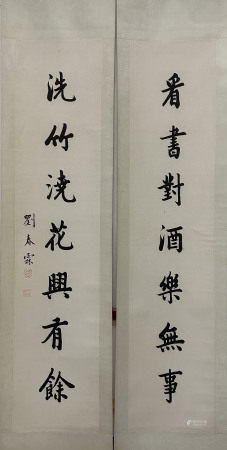 看書對酒樂無事
洗竹澆花興有餘
劉春霖